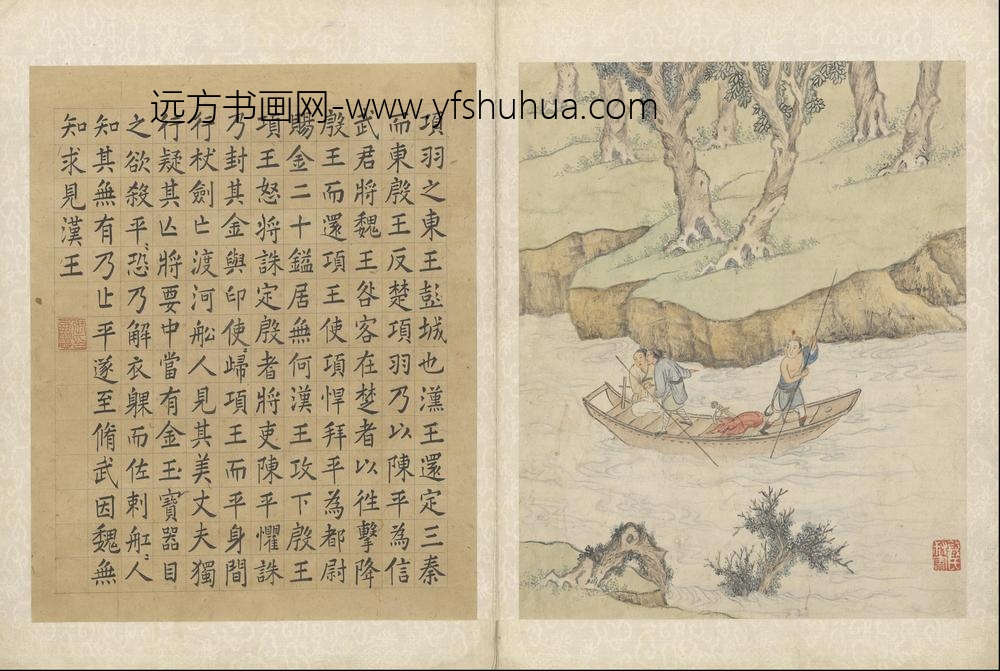 远方书画网-www.yfshuhua.com
項羽之東王彭城也漢王還定三秦
而東殷王反楚項羽乃以陳平為信
武君將魏王咎客在楚者以往擊降
殷王而還項王使項悍拜平為都尉
賜金二十鎰居無何漢王攻下殷王
項王怒將誅定殷者將吏陳平懼誅
乃封其金與印使歸項王而平身間
行杖劍亡渡河舩人見其美丈夫獨
行疑其亾將要中當有金玉寶器目
之欲殺平〻恐乃解衣躶而佐刺舡〻人
知其無有乃止平遂至脩武因魏無
知求見漢王